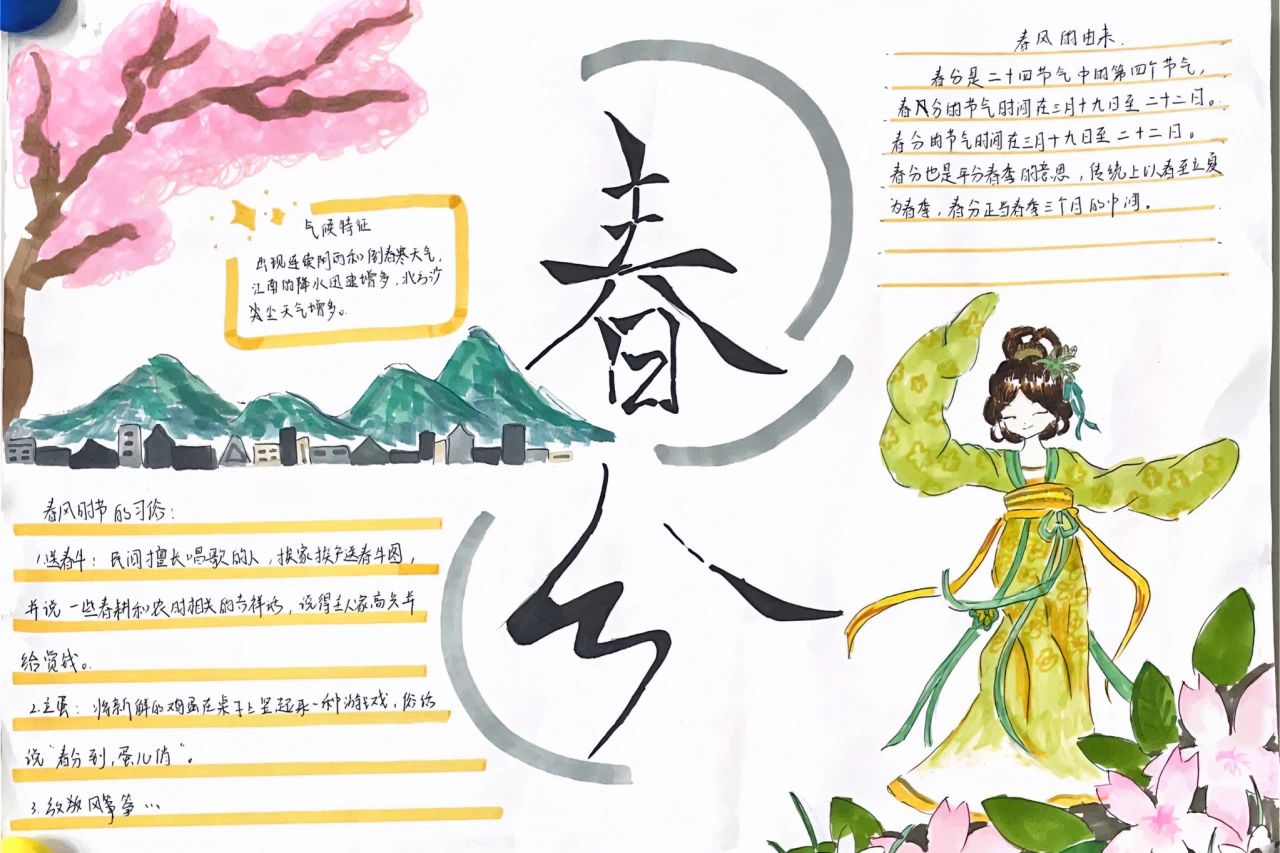 春风的由来.
春分是二十四节气中的第四个节气,
春风分的节气时间在三月十九日至二十二日。
春分的节气时间在三月十九日至二十二日。
春分也是平分春季的意思,传统上以春至立夏
为春季,春分正当春季三个月的中间。
气候特征
出现连续阴雨和倒春寒天气,
江南的降水迅速增多,北方沙
尘天气增多。
春
分
春风时节的习俗:
1.送春牛:民间擅长唱歌的人,挨家挨户送春牛图,
并说一些春耕和农时相关的吉祥话,说得主人家高兴并
给赏钱。
2.立蛋:将新鲜的鸡蛋在桌子上竖起来一种游戏,俗话
说"春分到,蛋儿俏"。
3.放风筝…